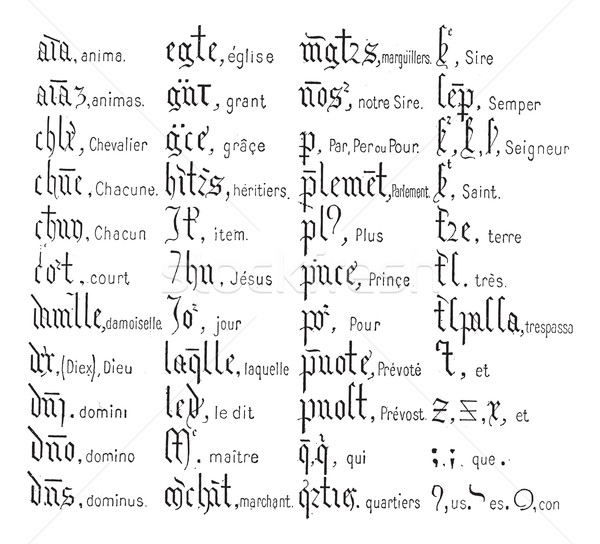 aīa, anima. egłe, église m̄gtꝛs, marguillers. ẜᵉ, Sire
aīaꝫ, animas. gn̈t, grant n̄os², notre Sire. sep̄, Semper
chlr̄, Chevalier gc̈e, grâce p, Par, Per ou Pour. Seigneur
chūe, Chacune. hītꝛs, héritiers. p̄lemēt, Parlement. Saint.
chun, Chacun It, item. pl⁹, Plus tꝛe, terre
coꝛt, court Jhu, Jésus pnce, Prinçe tl. très.
damłlle, damoiselle Joꝛ, jour poꝛ, Pour tlpassa, trespassa
dēx, (Diex), Dieu laq̄lle, laquelle p̄uote, Prévoté ⁊, et
dn̄i. domini led, le dit puost, Prévost. Z, x, et
dn̄o, domino Mᵉ. maître q̄, q̇, qui ;.; que.
dn̄s, dominus. m̄chāt, marchant. qꝛtieꝛs. quartiers ꝯ, us. es. con
stockfresh